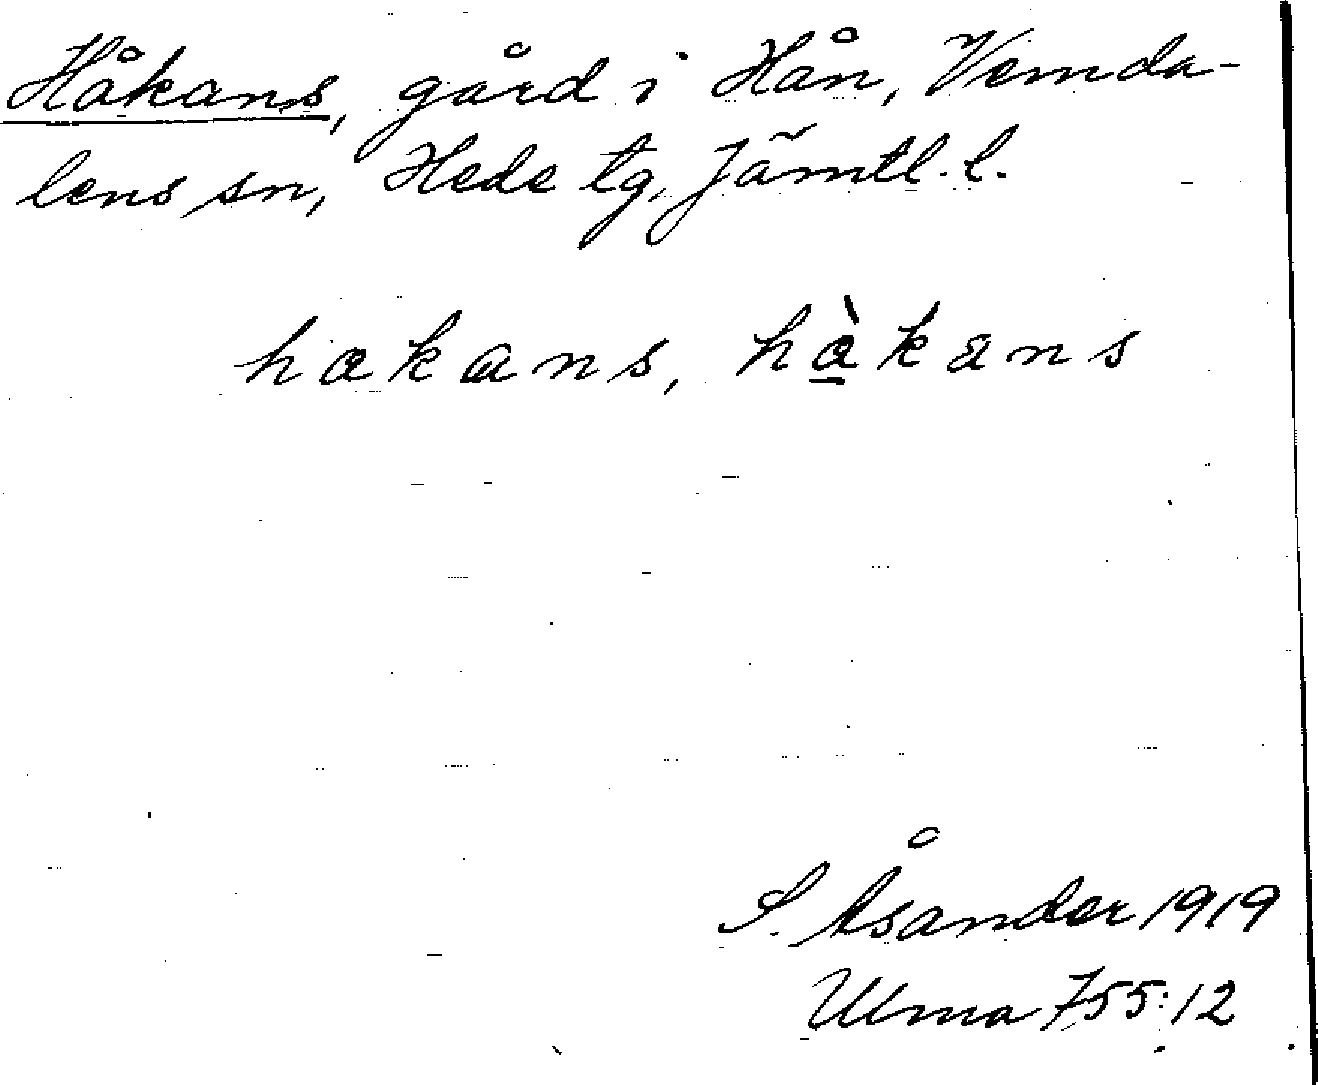 Håkans, gård i Hån, Vemda-
lens sn, Hede tg, Jämtl. l.
hakans, hàkans
S. Åsander 1919
Ulma 755:12